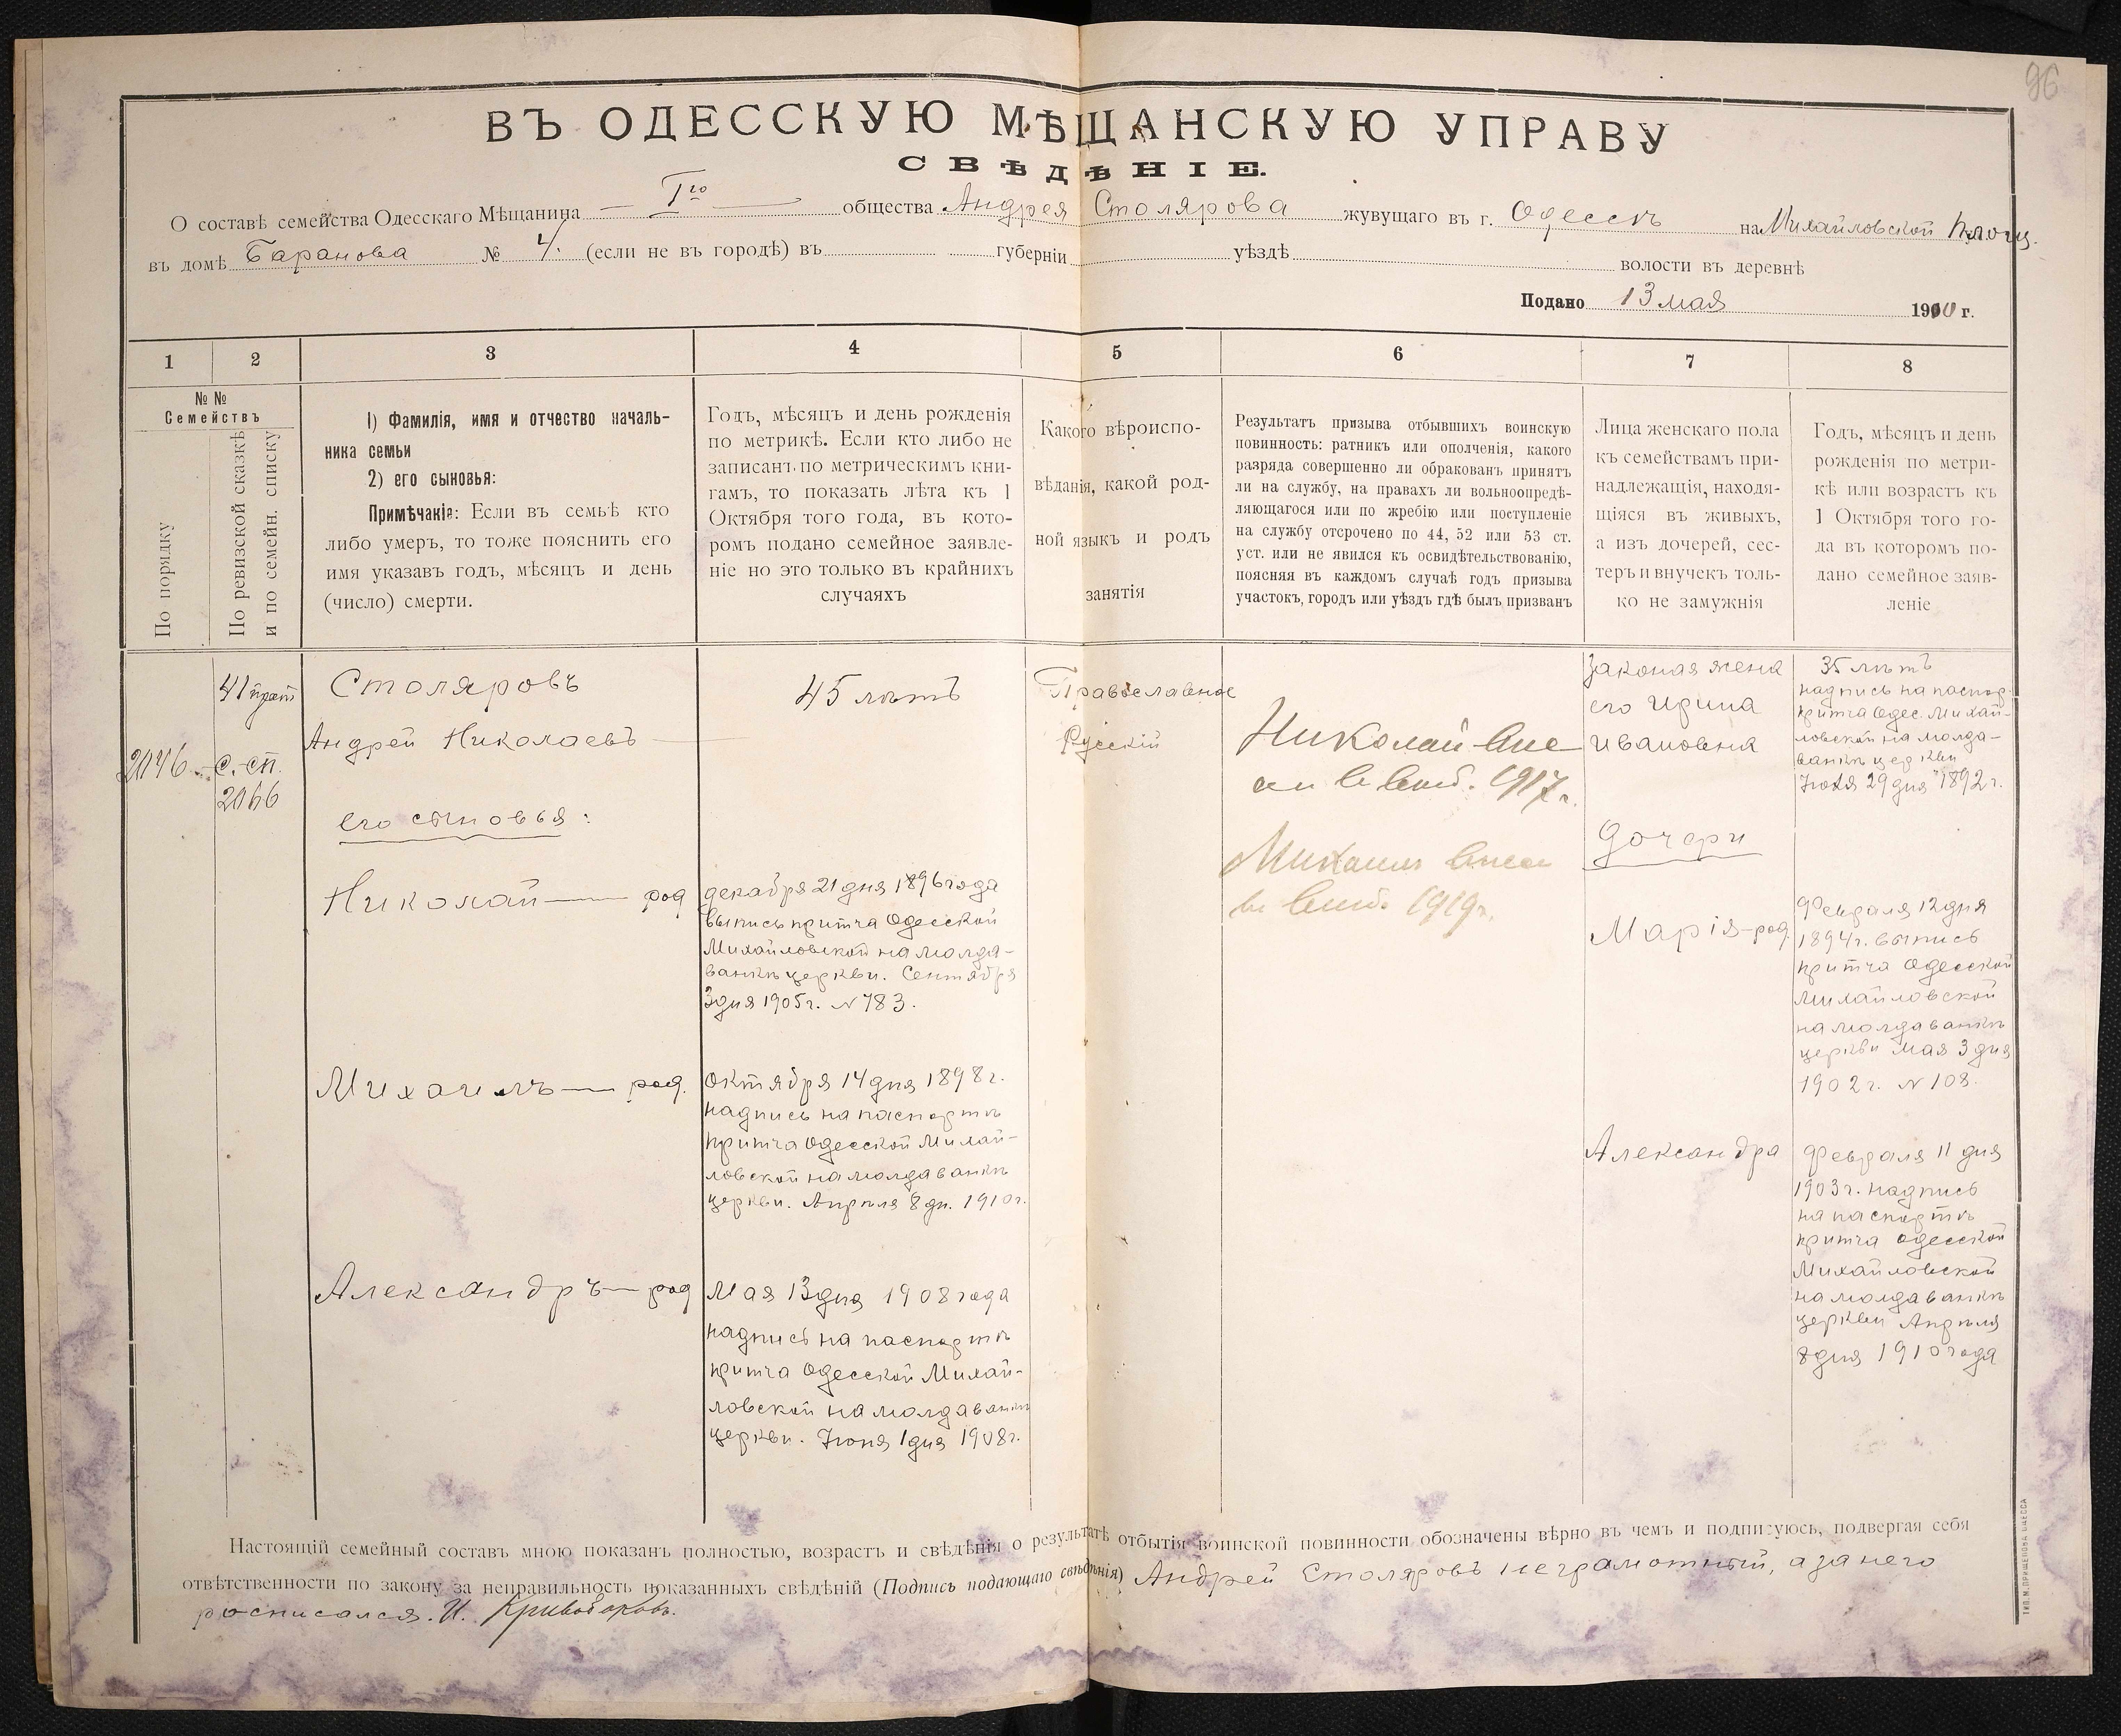 96
ВЪ ОДЕССКУЮ МѢЩАНСКУЮ УПРАВУ
СВѢДѢНІЕ.
О составѣ семейства Одесскаго Мѣщанина — Iго — общества Андрея Столярова жувущаго въ г. Одессѣ на Михайловской площ.
въ домѣ Баранова № 4. (если не въ городѣ) въ губерніи уѣздѣ волости въ деревнѣ
Подано 13 мая 1910 г.
1 2 3 4 5 6 7 8
№ №
Семействъ
По порядку
По ревизской сказкѣ
и по семейн. списку
1) Фамилія, имя и отчество началь-
ника семьи
2) его сыновья:
Примѣчакіе: Если въ семьѣ кто
либо умеръ, то тоже пояснить его
имя указавъ годъ, мѣсяцъ и день
(число) смерти.
Годъ, мѣсяцъ и день рожденія
по метрикѣ. Если кто либо не
записанъ по метрическимъ кни-
гамъ, то показать лѣта къ 1
Октября того года, въ кото-
ромъ подано семейное заявле-
ніе но это только въ крайнихъ
случаяхъ
Какого вѣроиспо-
вѣданія, какой род-
ной языкъ и родъ
занятія
Результатъ призыва отбывшихъ воинскую
повинность: ратникъ или ополченія, какого
разряда совершенно ли обракованъ принятъ
ли на службу, на правахъ ли вольноопредѣ-
ляющагося или по жребію или поступленіе
на службу отсрочено по 44, 52 или 53 ст.
уст. или не явился къ освидѣтельствованію,
поясняя въ каждомъ случаѣ годъ призыва
участокъ, городъ или уѣздъ гдѣ былъ призванъ
Лица женскаго пола
къ семействамъ при-
надлежащія, находя-
щіяся въ живыхъ,
а изъ дочерей, сес-
теръ и внучекъ толь-
ко не замужнія
Годъ, мѣсяцъ и день
рожденія по метри-
кѣ или возрастъ къ
1 Октября того го-
да въ которомъ по-
дано семейное заяв-
леніе
2046
41
с. сп.
2066
Столяровъ
Андрей Николаевъ —
его сыновья:
Николай — род
Михаилъ — род.
Александръ — род
45 лѣтъ
декабря 21 дня 1896 года
выпись притча Одесской
Михайловской на молда-
ванкѣ церкви. Сентября
3 дня 1905 г. № 783.
октября 14 дня 1898 г.
надпись на паспортѣ
притча Одесской Михай-
ловской на молдаванкѣ
церкви. Апрѣля 8 дн. 1910 г.
Мая 13 дня 1908 года
надпись на паспортѣ
притча Одесской Михай-
ловской на молдаванкѣ
церкви. Іюня 1 дня 1908 г.
Православное
Русскій
Николай
1917 г.
Михаилъ
1919 г.
Законая жена
его Ирина
Ивановна
дочери
Марія — род.
Александра
35 лѣтъ
надпись на паспор.
притча Одес. Михай-
ловской на молда-
ванкѣ церкви
29 дня 1892 г.
Февраля 12 дня
1894 г. выпись
притча Одесской
Михайловской
на молдаванкѣ
церкви мая 3 дня
1902 г. № 108.
Февраля 11 дня
1903 г. надпись
на паспортѣ
притча Одесской
Михайловской
на молдаванкѣ
церкви Апрѣля
8 дня 1910 года
Настоящій семейный составъ мною показанъ полностью, возрастъ и свѣдѣнія о результатѣ отбытія воинской повинности обозначены вѣрно въ чемъ и подписуюсь, подвергая себя
отвѣтственности по закону за неправильность показанныхъ свѣдѣній (Подпись подающаго свѣдѣнія) Андрей Столяровъ неграмотный, а за него
росписался. И. Кривобоковъ.